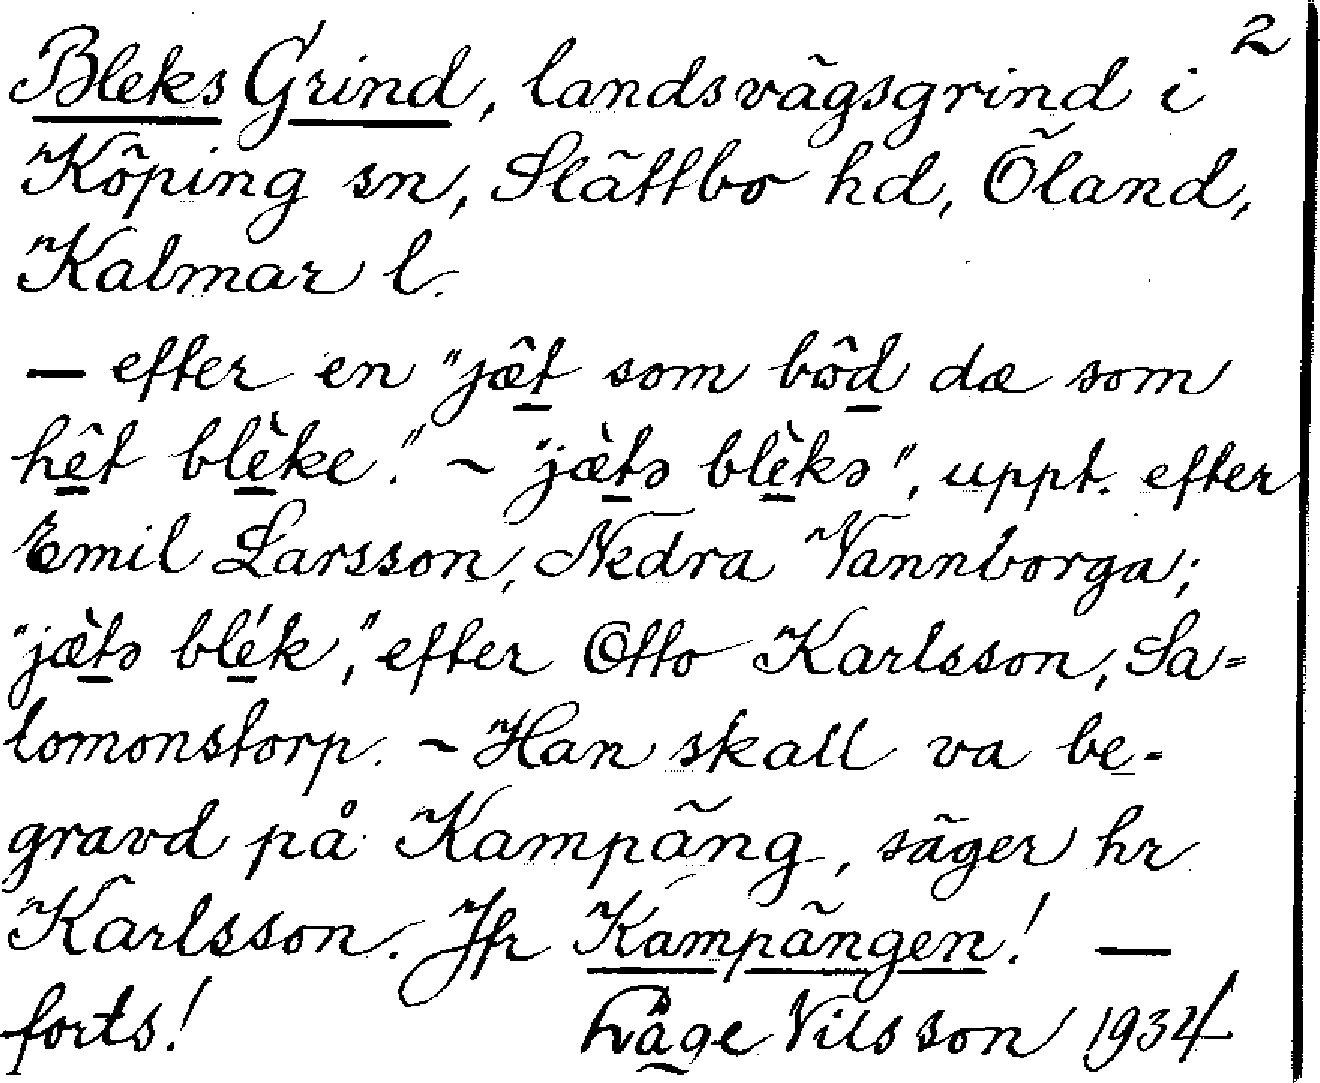 2
Bleks Grind, landsvägsgrind i
Köping sn, Slättbo hd, Öland,
Kalmar l.
— efter en "jæ̂t som bôd dæ som
hêt blèke." ~ "jæ̀tə blèkə", uppt. efter
Emil Larsson, Nedra Vannborga;
"jæ̀tə blék", efter Otto Karlsson, Sa=
lomonstorp. ~ Han skall va be-
gravd på Kampäng, säger hr
Karlsson. Jfr Kampängen! —
forts! Håge Nilsson 1934